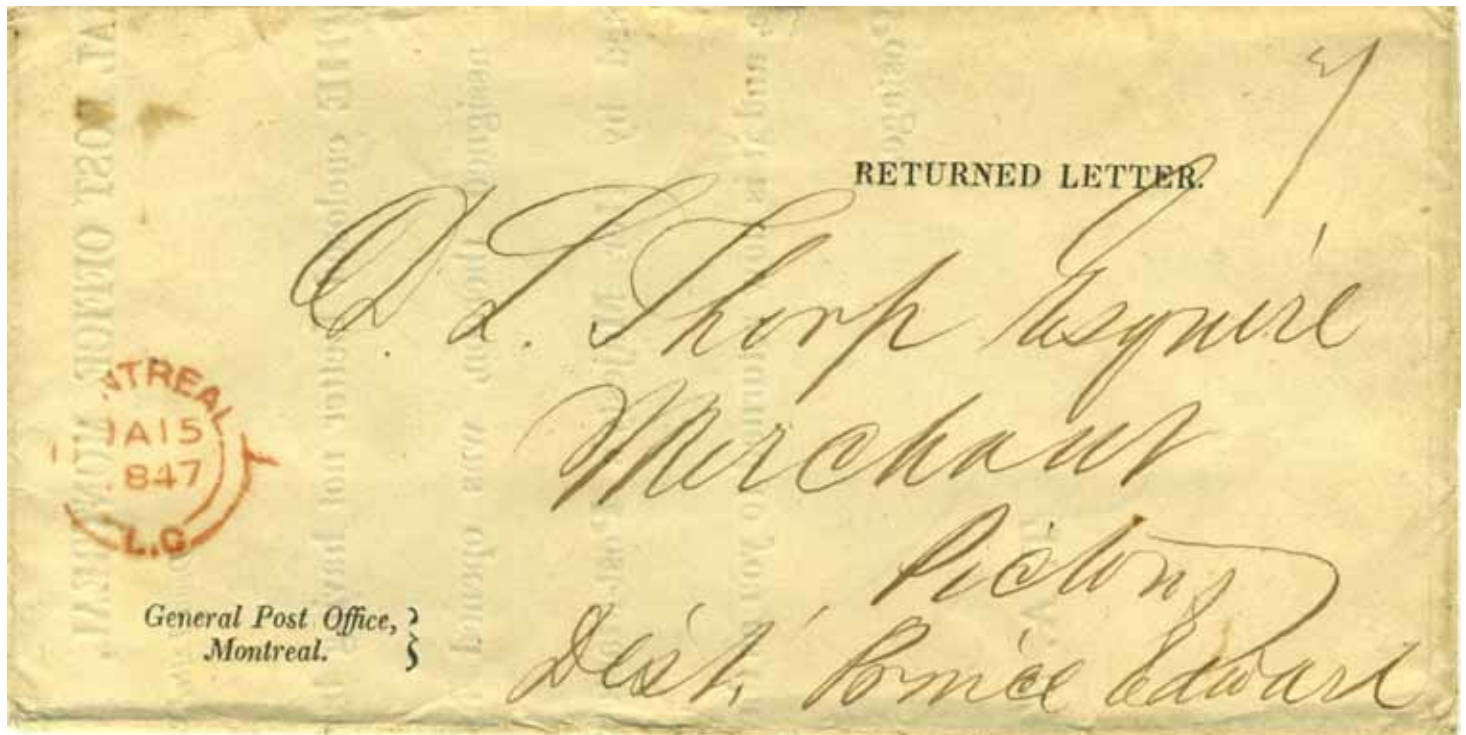 RETURNED LETTER.
D. L. Thorp Esquire
Merchant
Picton
Dist. Prince Edward
NTREAL
JA 15
1847
L.C.
General Post Office,
Montreal.